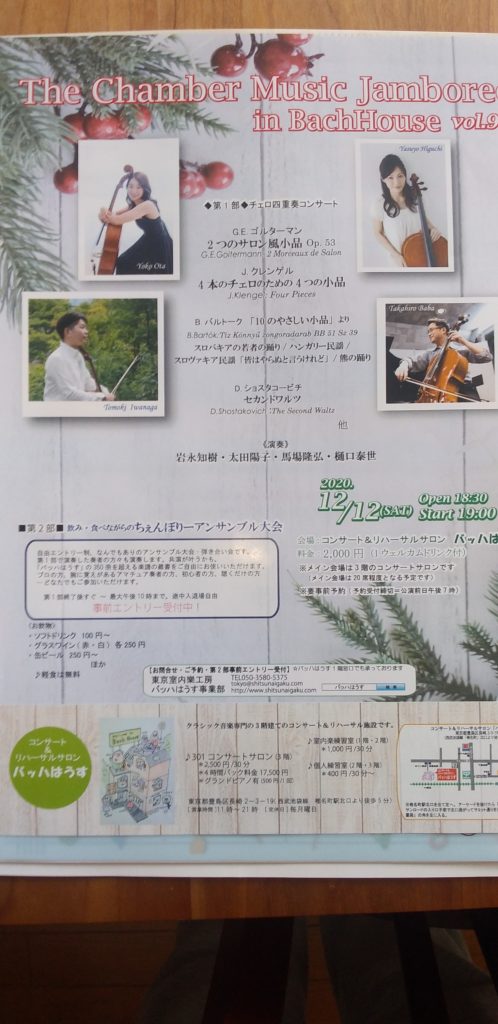 The Chamber Music Jamboree
in BachHouse vol.9
Yoko Ota
Yasuyo Higuchi
Tomoki Iwanaga
Takahiro Baba
◆第1部◆チェロ四重奏コンサート
G.E. ゴルターマン
2つのサロン風小品 Op. 53
G.E.Goltermann: 2 Morceaux de Salon
J. クレンゲル
4本のチェロのための4つの小品
J.Klengel: Four Pieces
B. バルトーク 「10のやさしい小品」より
B.Bartók:Tíz Könnyű zongoradarab BB 51 Sz 39
スロバキアの若者の踊り / ハンガリー民謡 /
スロヴァキア民謡「皆はやらぬと言うけれど」/ 熊の踊り
D. ショスタコービチ
セカンドワルツ
D.Shostakovich:The Second Waltz
他
《演奏》
岩永知樹・太田陽子・馬場隆弘・樋口泰世
2020.
12/12(SAT) Open 18:30
Start 19:00
会場: コンサート&リハーサルサロン バッハは
料金 2,000円 (1ウェルカムドリンク付)
※メイン会場は3階のコンサートサロンです。
(メイン会場は20席程度となる予定です)
※要事前予約 (予約受付締切=公演前日午後7時)
■第2部■ 飲み・食べながらのちぇんぼりーアンサンブル大会
自由エントリー制、なんでもありのアンサンブル大会・弾き合い会です。
第1部で演奏した奏者の方々も演奏します。共演が叶うかも。
「バッハはうす」の350余を超える楽譜の蔵書をご自由にお使いいただけます。
プロの方、腕に覚えがあるアマチュア奏者の方、初心者の方、聴くだけの方
～どなたでもご参加いただけます。
第1部終了後すぐ ～ 最大午後10時まで。途中入退場自由
事前エントリー受付中!
<お飲物>
・ソフトドリンク 100円～
・グラスワイン(赤・白)各250円
・缶ビール 250円～
ほか
♪軽食は無料
【お問合せ・ご予約・第2部事前エントリー受付】☆バッハはうす1階窓口でも承っております
東京室内樂工房 TEL050-3580-5375
tokyo@shitsunaigaku.com
バッハはうす事業部 http://www.shitsunaigaku.com
バッハはうす 検索
コンサート
&
リハーサルサロン
バッハはうす
クラシック音楽専門の3階建てのコンサート&リハーサル施設です。
♪301コンサートサロン(3階)
*2,500円/30分
*4時間パック料金 17,500円
*グランドピアノ有(500円/1回)
♪室内楽練習室(1階・2階)
*1,000円/30分
♪個人練習室(2階・3階)
*400円/30分～
東京都豊島区長崎2-3-19(西武池袋線 椎名町駅北口より徒歩5分)
[営業時間]11時～21時 [休業日]毎月曜日